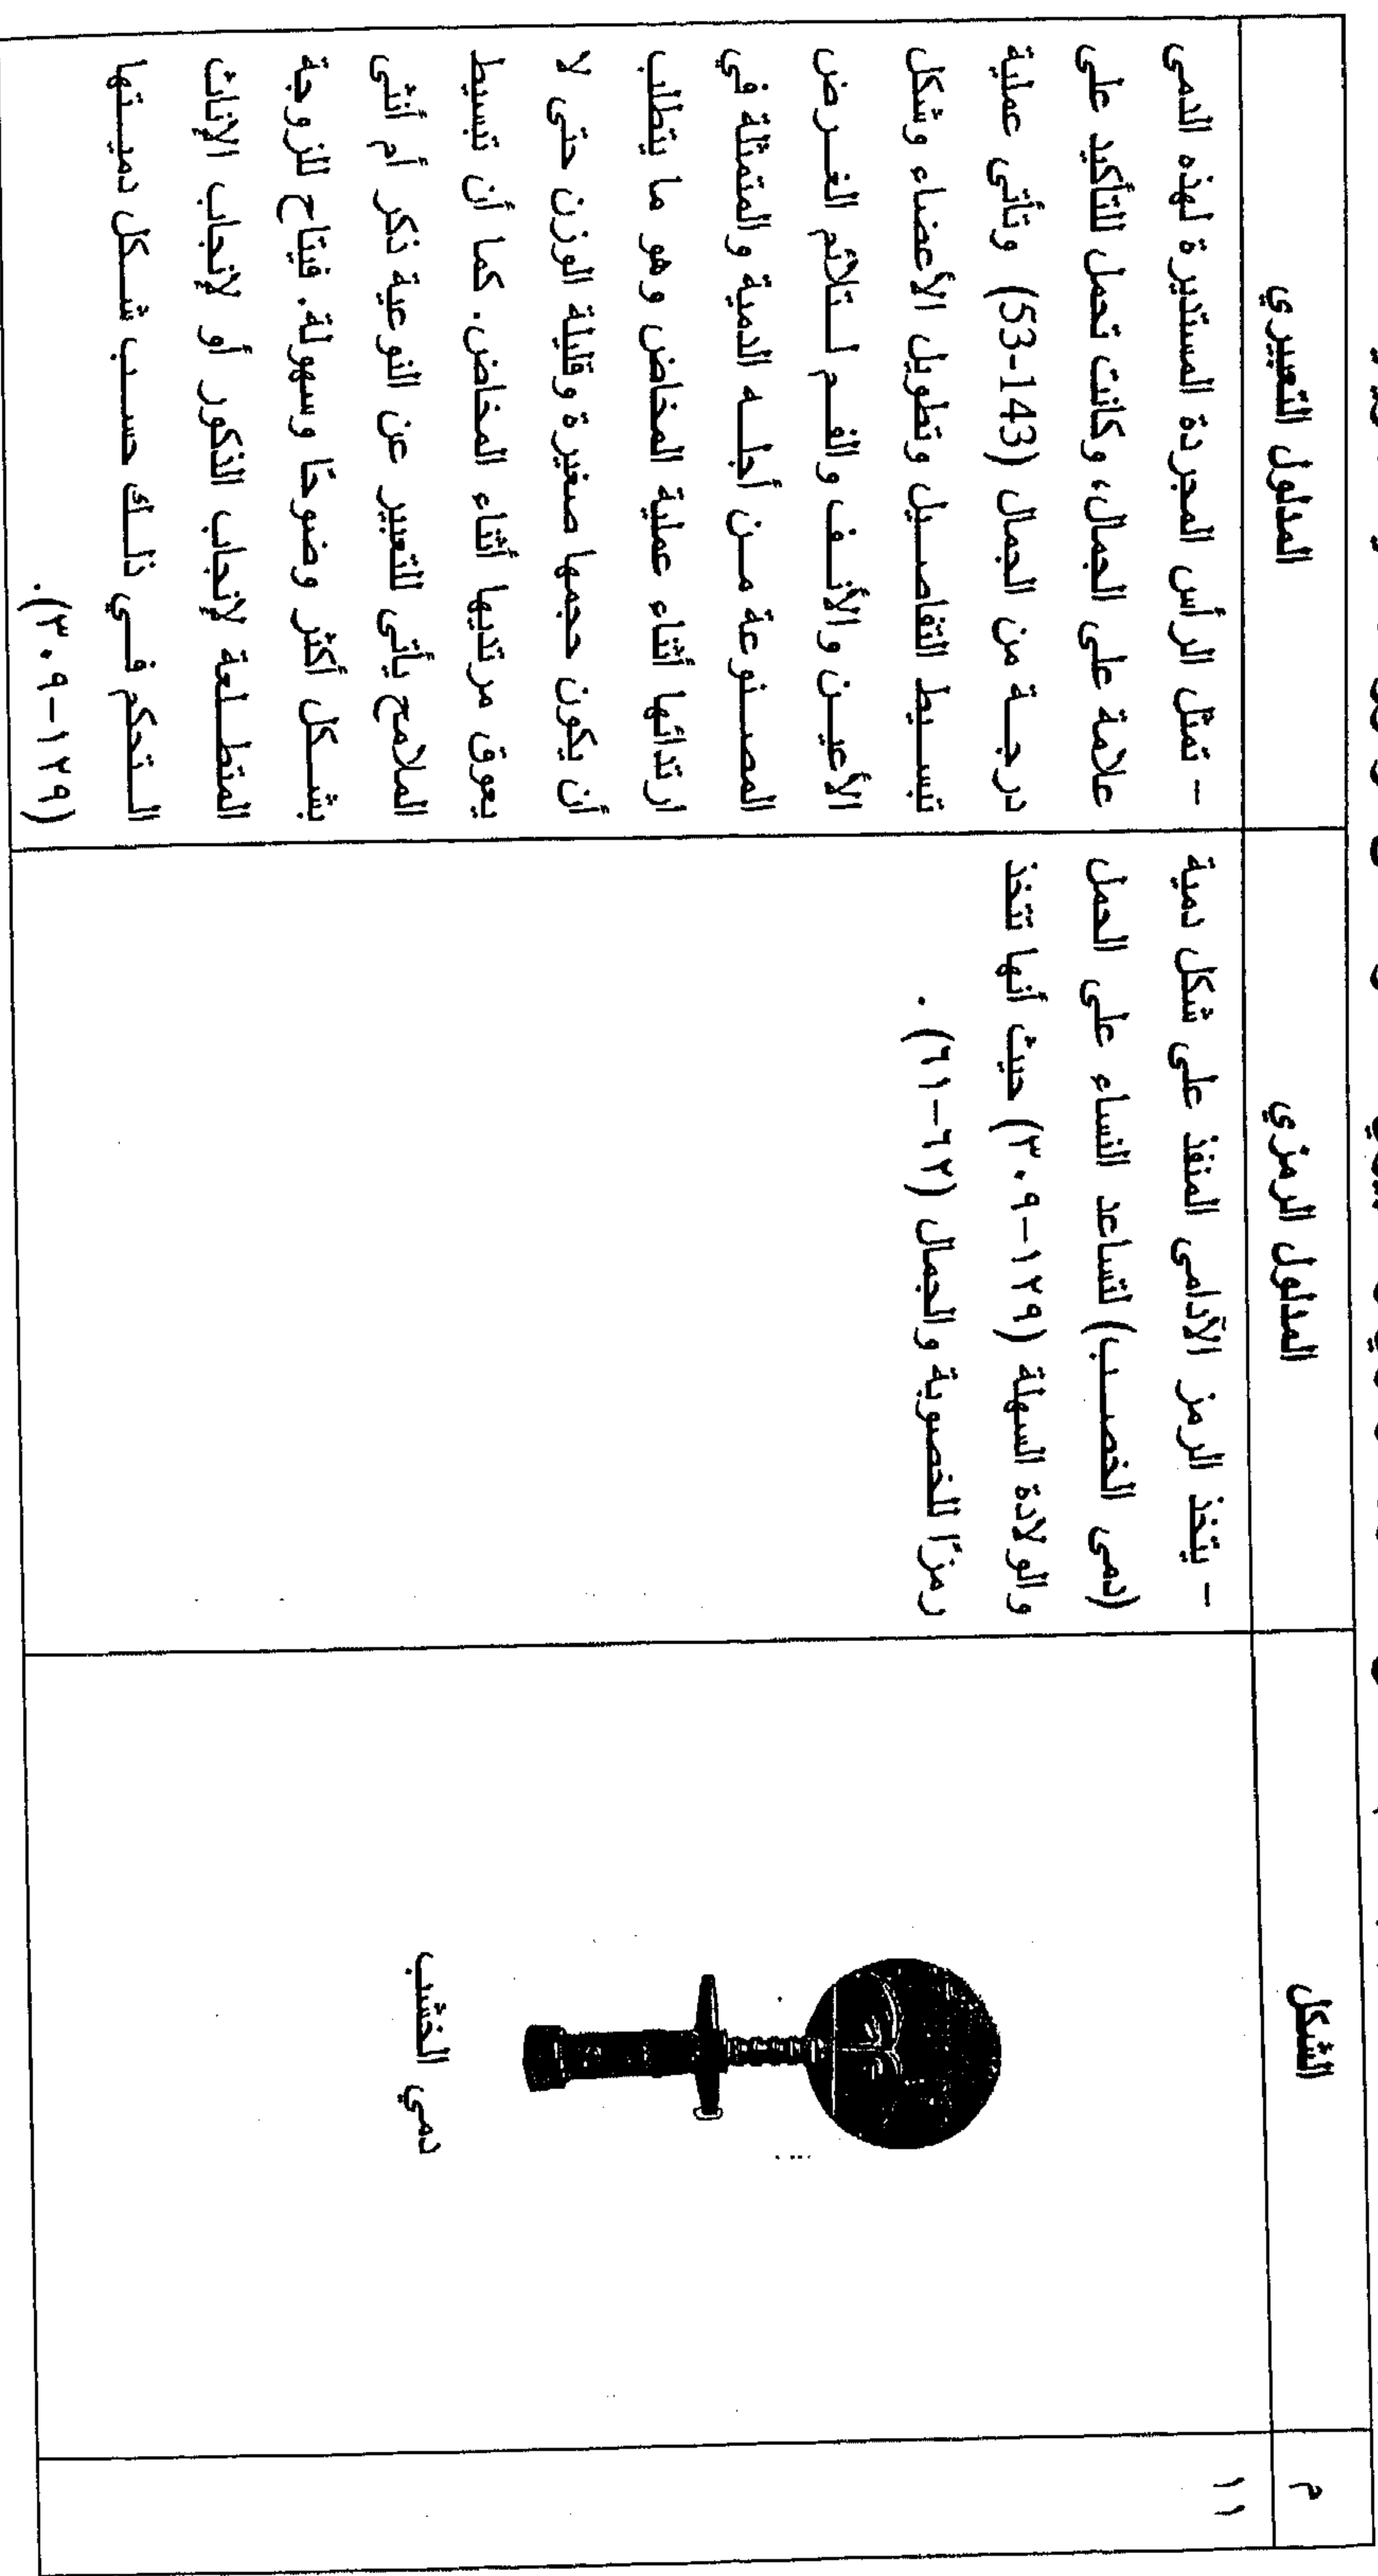 م
الشكل
المدلول الرمزي
المدلول التعبيري
١١
دمي الخشب
- يتخذ الرمز الآدامى المنفذ على شكل دمية
(دمى الخصب) لتساعد النساء على الحمل
والولادة السهلة (١٢٩-٣٠٩) حيث أنها تتخذ
رمزًا للخصوبة والجمال (٦٢-٦١) .
- تمثل الرأس المجردة المستديرة لهذه الدمى
علامة على الجمال، وكانت تحمل للتأكيد على
درجة من الجمال (143-53) وتأتى عملية
تبسيط التفاصيل وتطويل الأعضاء وشكل
الأعين والأنف والفم لتلائم الغرض
المصنوعة من أجله الدمية والمتمثلة في
ارتدائها أثناء عملية المخاض وهو ما يتطلب
أن يكون حجمها صغيرة وقليلة الوزن حتى لا
يعوق مرتديها أثناء المخاض. كما أن تبسيط
الملامح يأتى للتعبير عن النوعية ذكر أم أنثى
بشكل أكثر وضوحًا وسهولة. فيتاح للزوجة
المتطلعة لإنجاب الذكور أو لإنجاب الإناث
التحكم في ذلك حسب شكل دميتها
(١٢٩-٣٠٩).